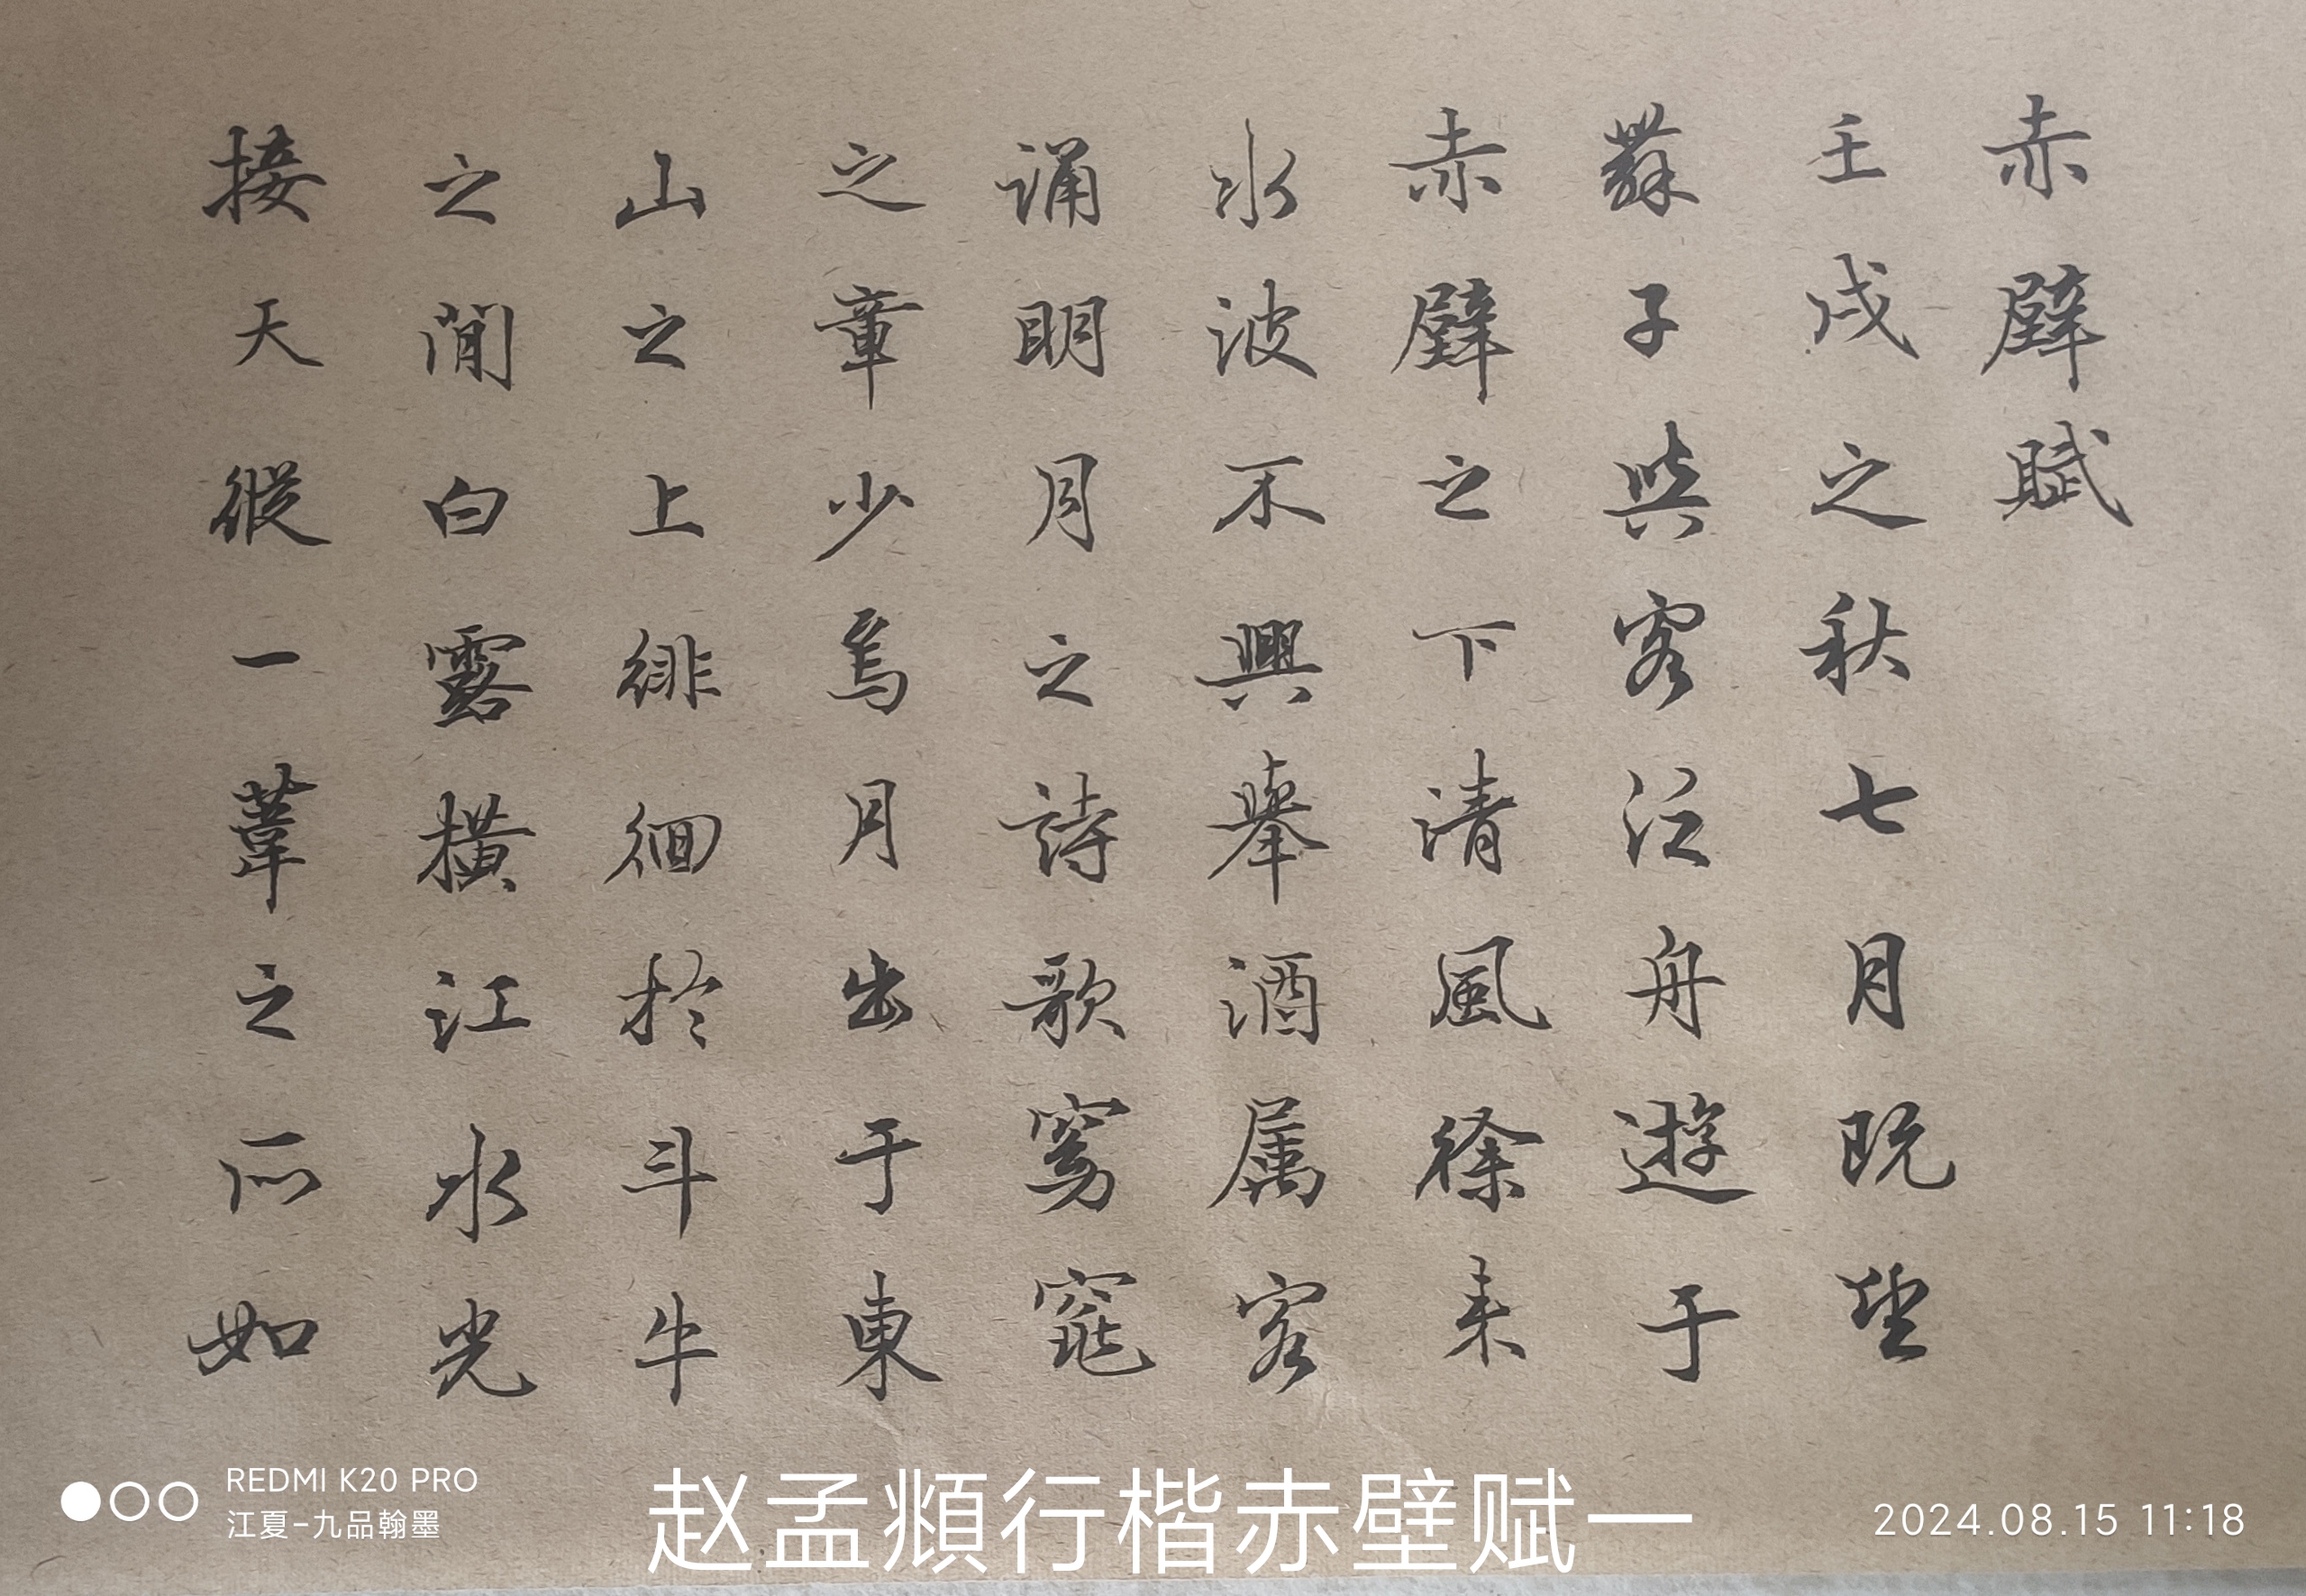 赤壁賦
壬戌之秋七月既望
蘇子與客泛舟遊于
赤壁之下清風徐来
水波不興舉酒属客
誦明月之詩歌窈窕
之章少焉月出于東
山之上徘徊於斗牛
之間白露橫江水光
接天縱一葦之所如
REDMI K20 PRO
江夏-九品翰墨
赵孟頫行楷赤壁赋一
2024.08.15 11:18